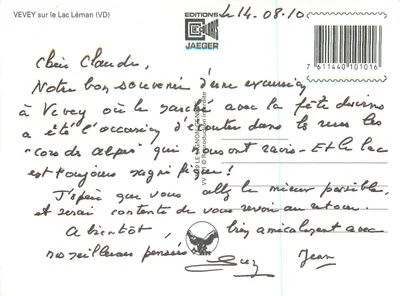 VEVEY sur le Lac Léman (VD)
EDITIONS
JAEGER
Le 14.08.10
7 611440 101016
Chère Claude,
Notre bon souvenir d'une excursion
à Vevey où le marché avec la fête du vin
a été l'occasion d'écouter dans les rues les
"cors des alpes" qui nous ont ravis - Et le lac
est toujours magnifique!
J'espère que vous allez le mieux possible,
et serai contente de vous revoir au retour.
A bientôt, bien amicalement avec
nos meilleures pensées
Jean